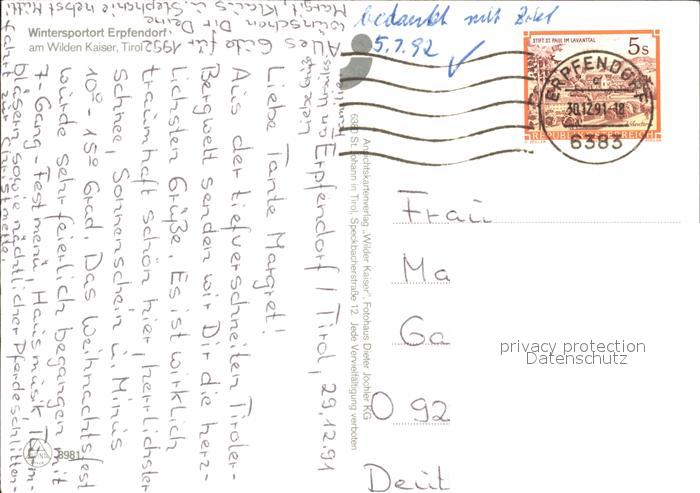 Wintersportort Erpfendorf
am Wilden Kaiser, Tirol
bedankt mit Brief
5.1.92
STIFT ST. PAUL IM LAVANTTAL
5s
REPUBLIK ÖSTERREICH
ERPFENDORF
30.12.91-18
6383
Erpfendorf / Tirol, 29.12.91
Liebe Tante Margret!
Aus der tiefverschneiten Tiroler-
Bergwelt senden wir Dir die herz-
lichsten Grüße. Es ist wirklich
traumhaft schön hier, herrlichster
Schnee, Sonnenschein u. Minus
10° - 15° Grad. Das Weihnachtsfest
wurde sehr feierlich begangen mit
7-Gang-Festmenü, Hausmusik, Turm-
bläsern sowie nächtlicher Pferdeschlitten-
fahrt zur Christmette.
Alles Gute für 1992
wünschen Dir Deine
Margit, Klaus u. Stephanie nebst Mutti
Ansichtskartenverlag „Wilder Kaiser", Fotohaus Dieter Jöchler KG
6380 St. Johann in Tirol, Speckbacherstraße 12. Jede Vervielfältigung verboten
Frau
Ma
Ga
O 92
Deut
privacy protection
Datenschutz
8981